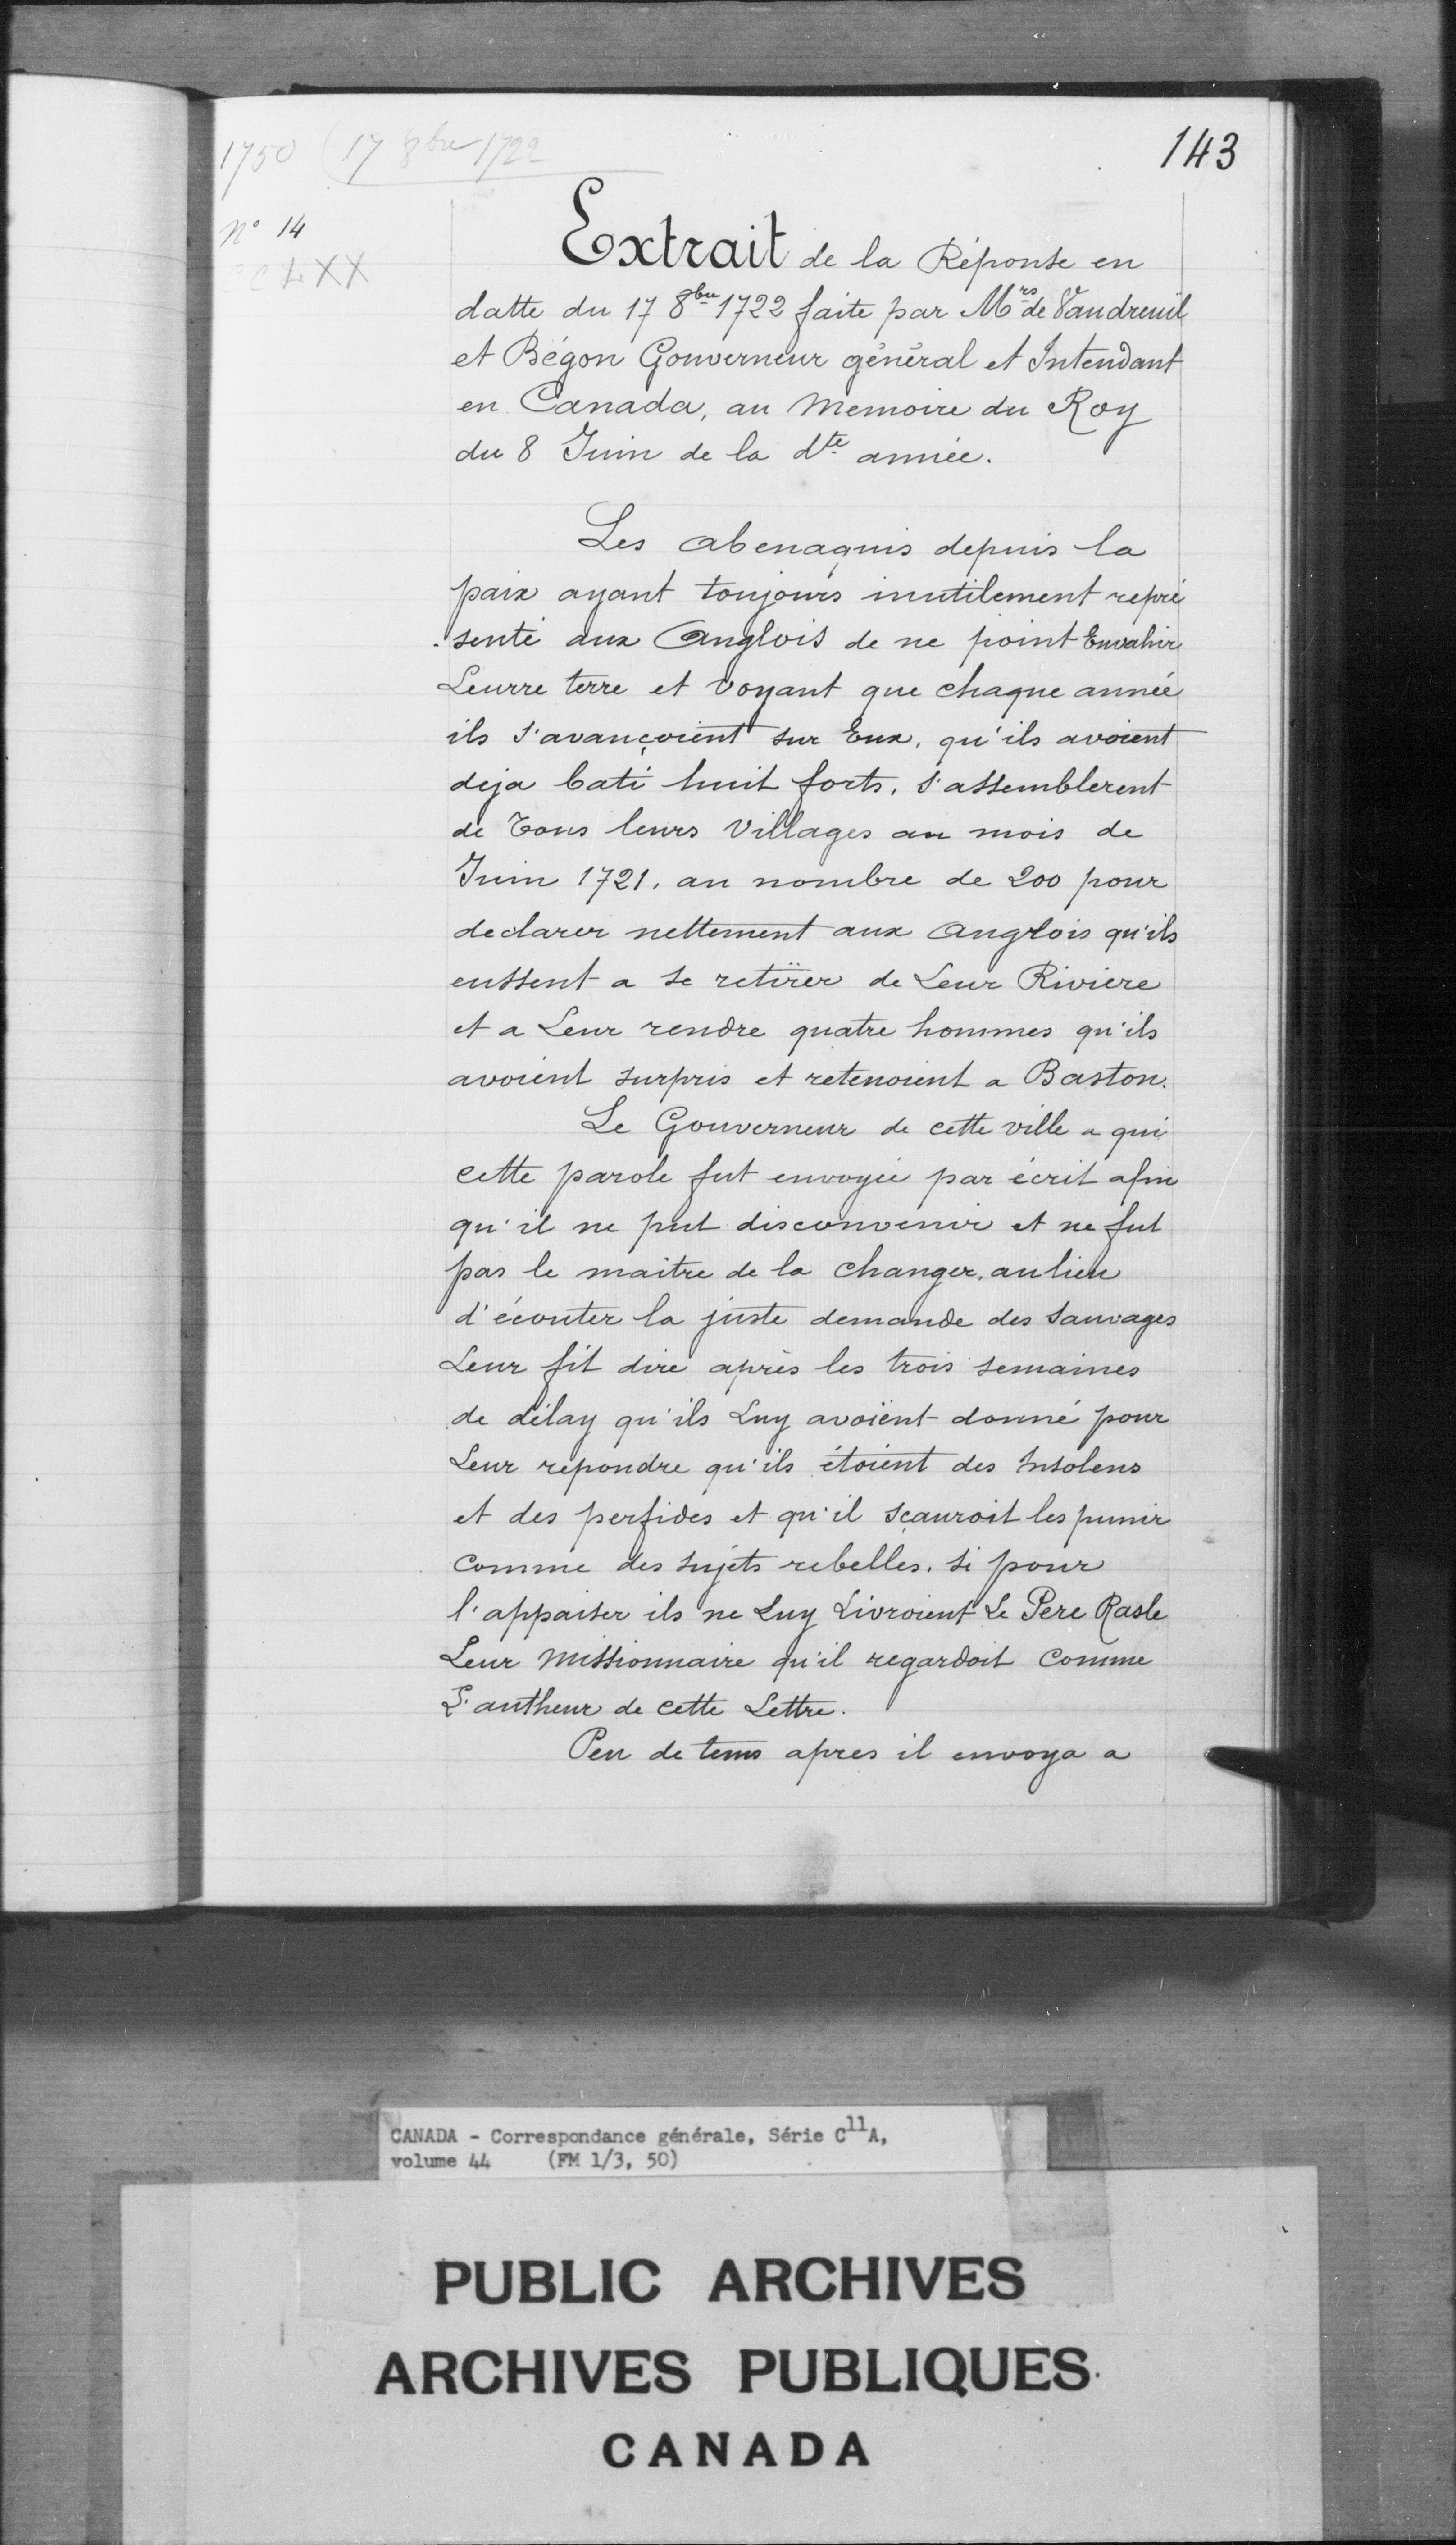 143
1750 (17 8bre 1722
N° 14
Extrait de la Réponse en
datte du 17 8bre 1722 faite par Mrs de Vaudreuil
et Bégon Gouverneur général et Intendant
en Canada, au Memoire du Roy
du 8 Juin de la dte année.
Les abenaquis depuis la
paix ayant toujours inutilement repré
senté aux Anglois de ne point Envahir
Leurre terre et voyant que chaque année
ils s'avançoient sur Eux, qu'ils avoient
deja bati huit forts, s'assemblerent
de Tous leurs Villages au mois de
Juin 1721, au nombre de 200 pour
declarer nettement aux Anglois qu'ils
eussent a se retirer de Leur Riviere
et a Leur rendre quatre hommes qu'ils
avoient surpris et retenoient a Baston.
Le Gouverneur de cette ville a qui
cette parole fut envoyée par écrit afin
qu'il ne put disconvenir et ne fut
pas le maitre de la changer, aulieu
d'écouter la juste demande des Sauvages
Leur fit dire après les trois semaines
de délay qu'ils Luy avoient donné pour
Leur repondre qu'ils étoient des Insolens
et des perfides et qu'il sçauroit les punir
comme des sujets rebelles, si pour
l'appaiser ils ne Luy Livroient Le Pere Rasle
Leur Missionnaire qu'il regardoit comme
L'autheur de cette Lettre.
Peu de tems apres il envoya a
CANADA - Correspondance générale, Série C11A,
volume 44 (FM 1/3, 50)
PUBLIC ARCHIVES
ARCHIVES PUBLIQUES
CANADA